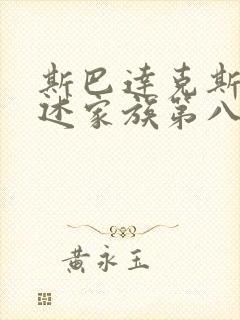 斯巴达克斯
述家族第八
黄永玉